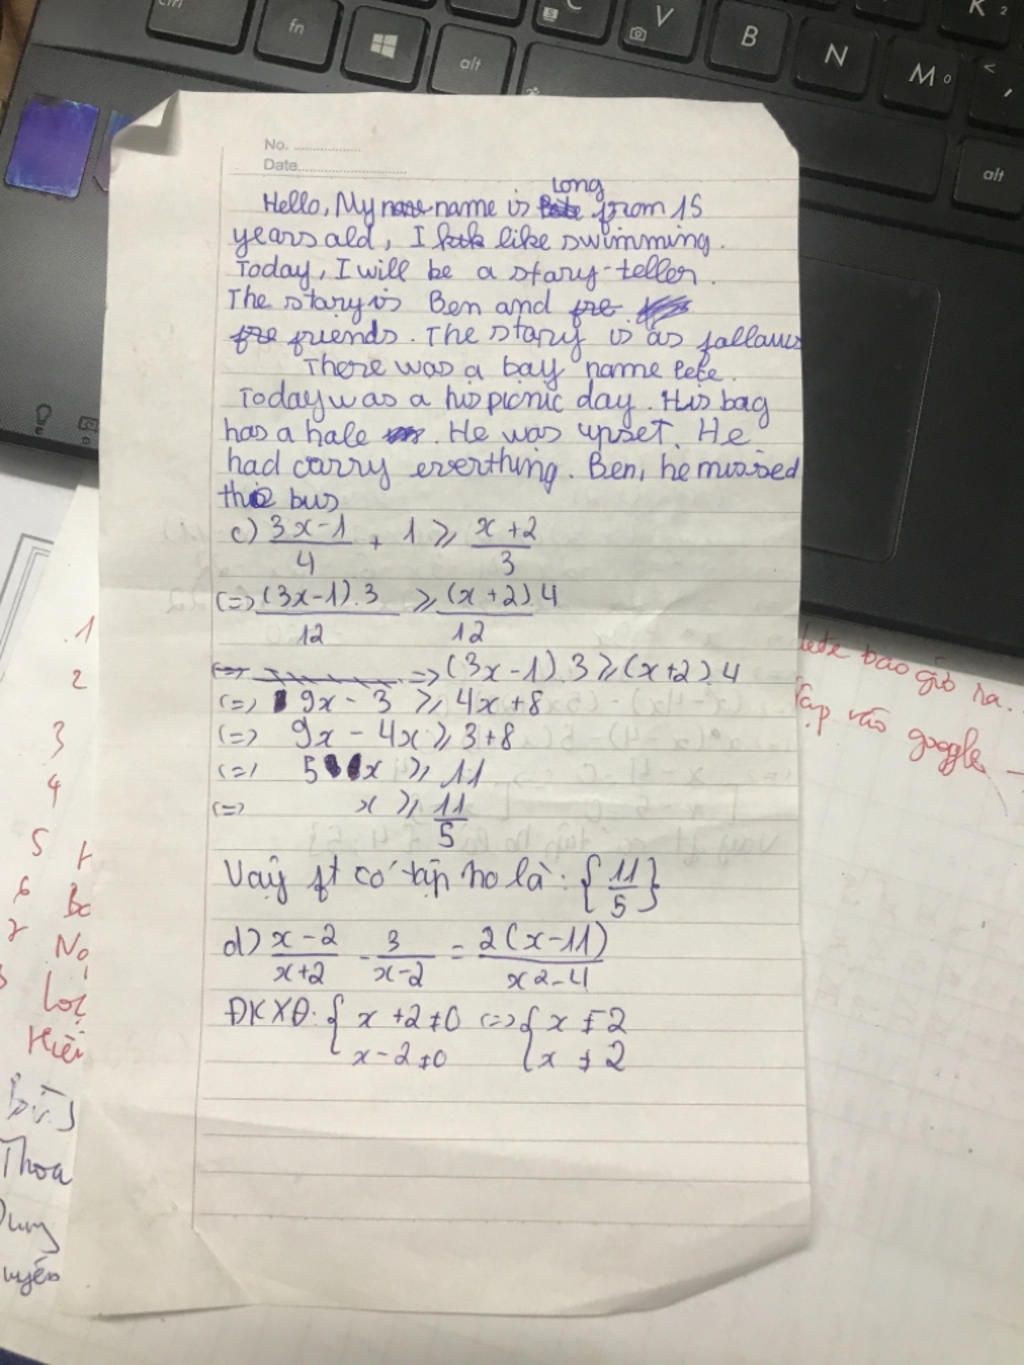 ctrl
fn
alt
C
S
V
B
N
M 0
K 2
<
,
alt
No. ..................
Date..............................
Long
Hello, My name is from 15
years ald, I like swimming.
Today, I will be a stary-teller.
The stary is Ben and fre
fre friends. The stany is as fallaws
There was a bay name Pete.
Today was a his picnic day. His bag
has a hale . He was upset. He
had carry everthing. Ben, he missed
the bus
c) (3x-1)/4 + 1 ⩾ (x+2)/3
(=> ((3x-1).3)/12 ⩾ ((x+2).4)/12
=> (3x-1).3 ⩾ (x+2).4
(=> 9x - 3 ⩾ 4x+8
(=> 9x - 4x ⩾ 3+8
(=> 5x ⩾ 11
(=> x ⩾ 11/5
Vậy ft có tập no là: {11/5}
d) (x-2)/(x+2) - 3/(x-2) = 2(x-11)/(x2-4)
ĐKXĐ: { x+2≠0 <=> { x ≠ 2
x-2≠0 x ≠ 2
bao giờ ra.
vào google
1
2
3
4
5
6
7
Bc
No
Hiề
Thoa